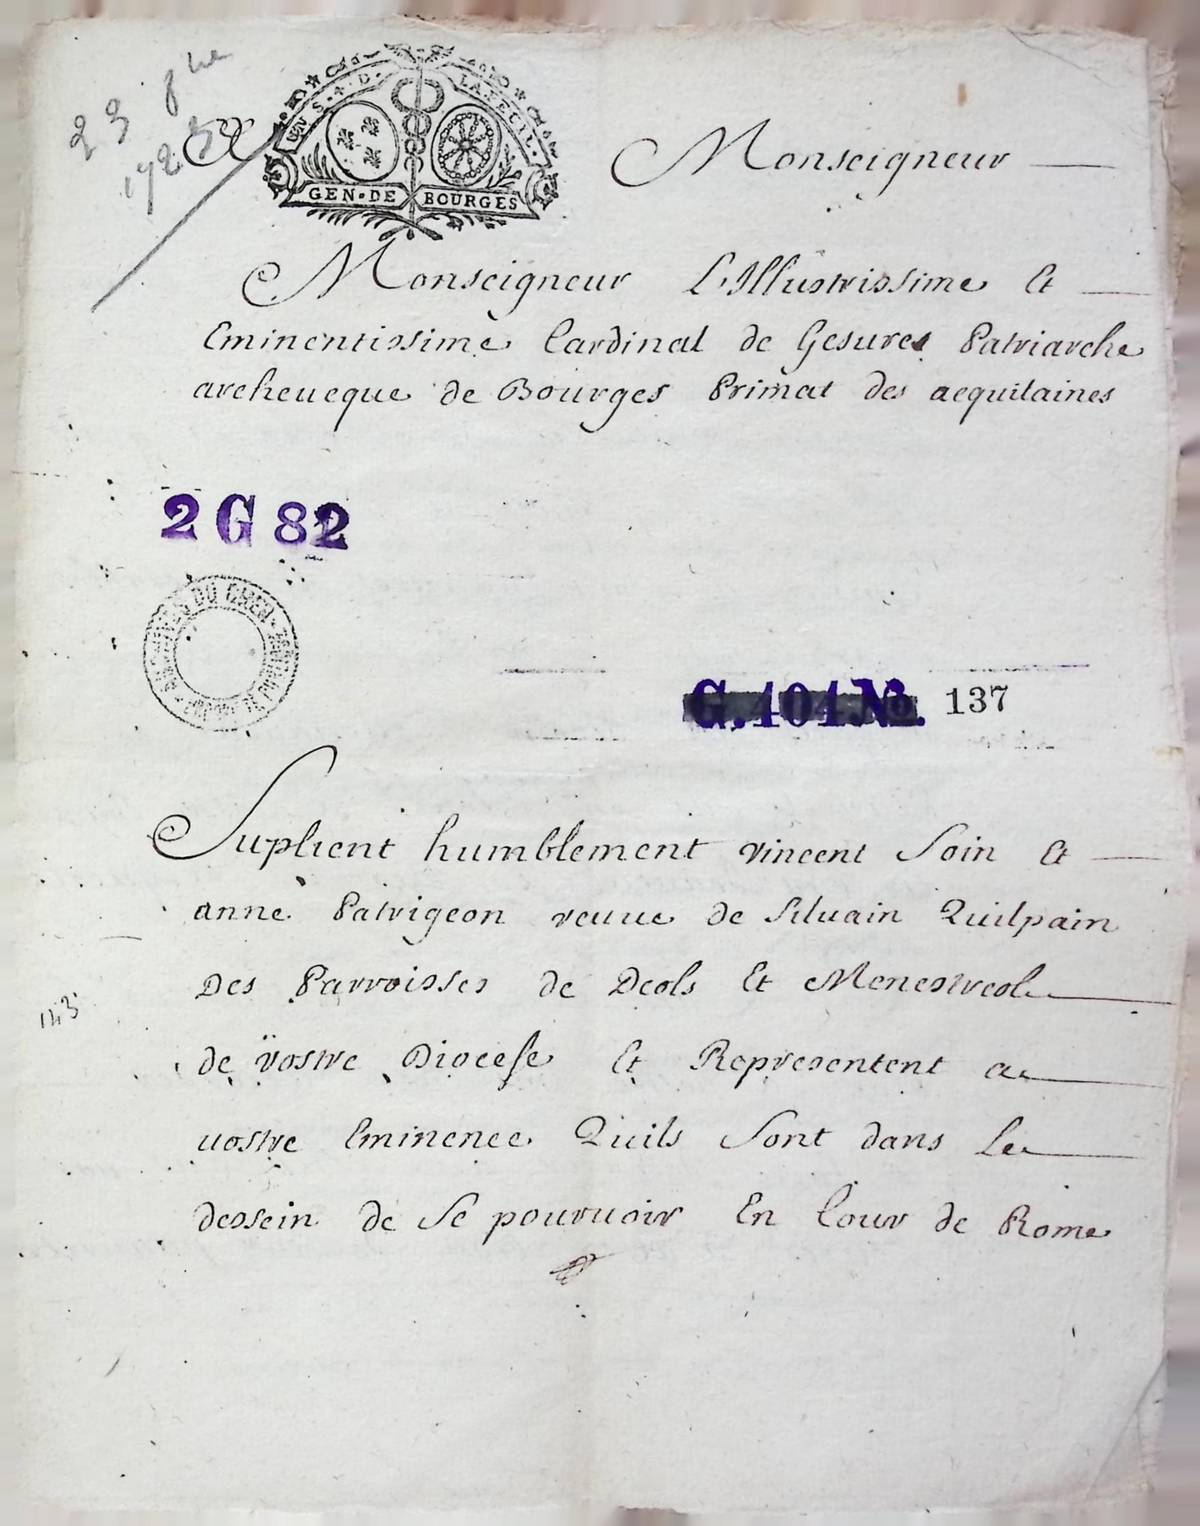 23 9bre
172
UN S. + D. LA FEUIL.
GEN. DE BOURGES
Monseigneur
Monseigneur L'Illustrissime Et
Eminentissime Cardinal de Gesures Patriarche
archeueque de Bourges Primat des aequitaines
2 G 82
G. 404 No. 137
Suplient humblement vincent Soin Et
anne Patrigeon veuue de Siluain Quilpain
Des Parroisses de Deols Et Menestreol
de vostre Diocese Et Representent a
vostre Eminence Quils Sont dans le
143
dessein de Se pouruoir En Cour de Rome